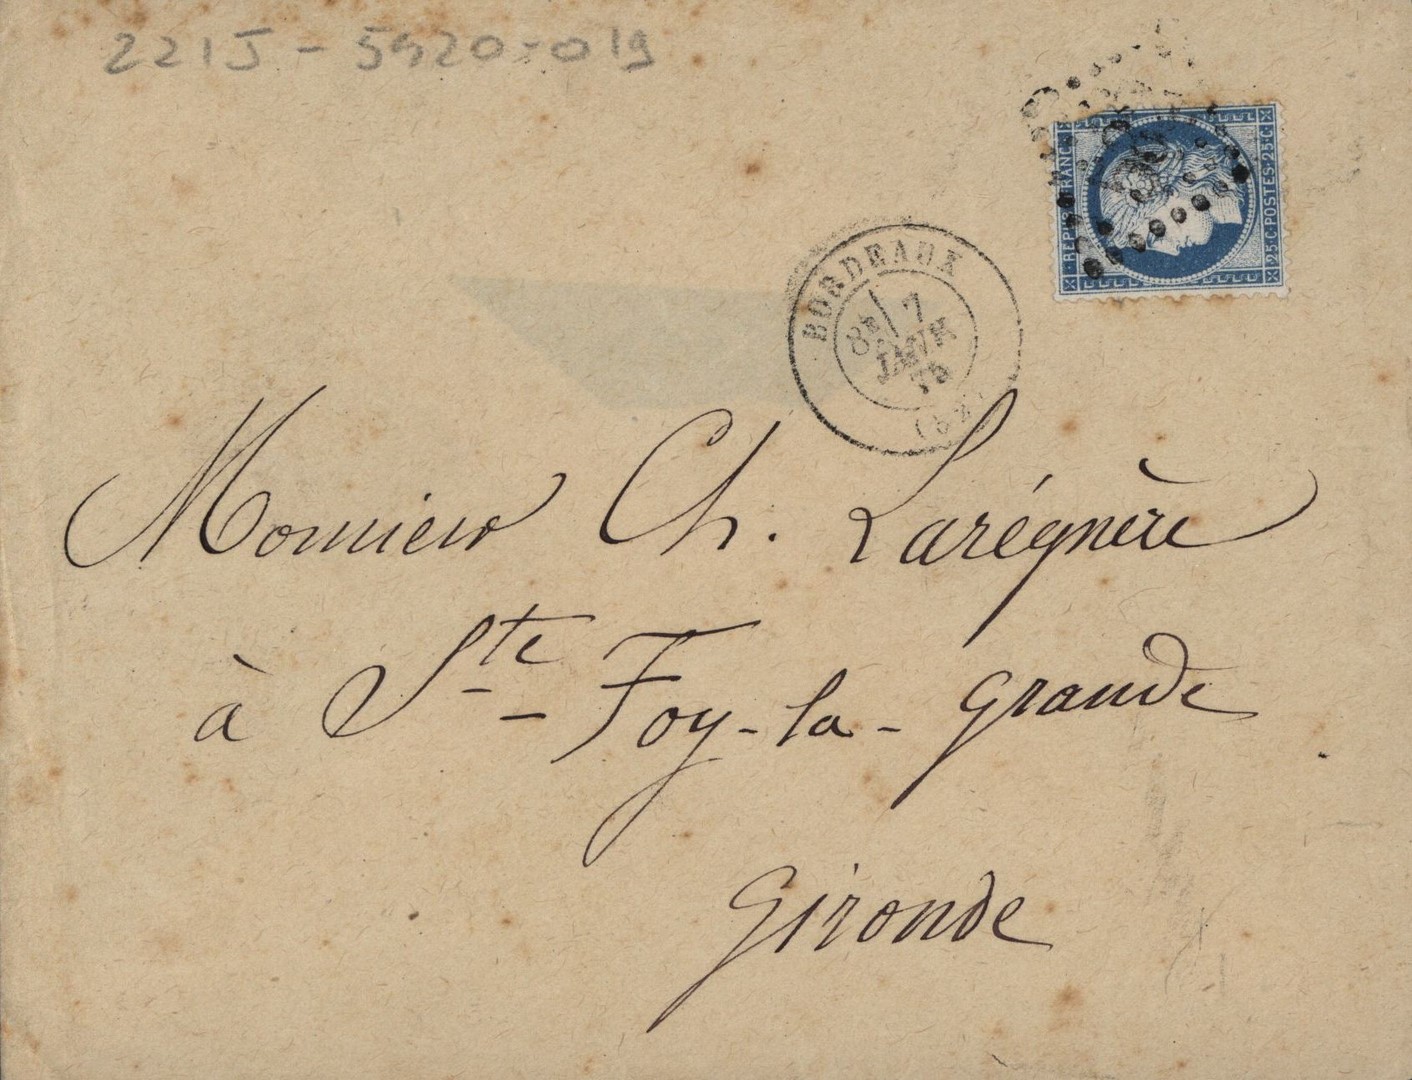 221J - 5420-019
REPUB FRANC
25·C·POSTES·25·C
BORDEAUX
8E 7
JANV
75
(32)
Monsieur Ch. Larégnère
à Ste-Foy-la-grande
Gironde